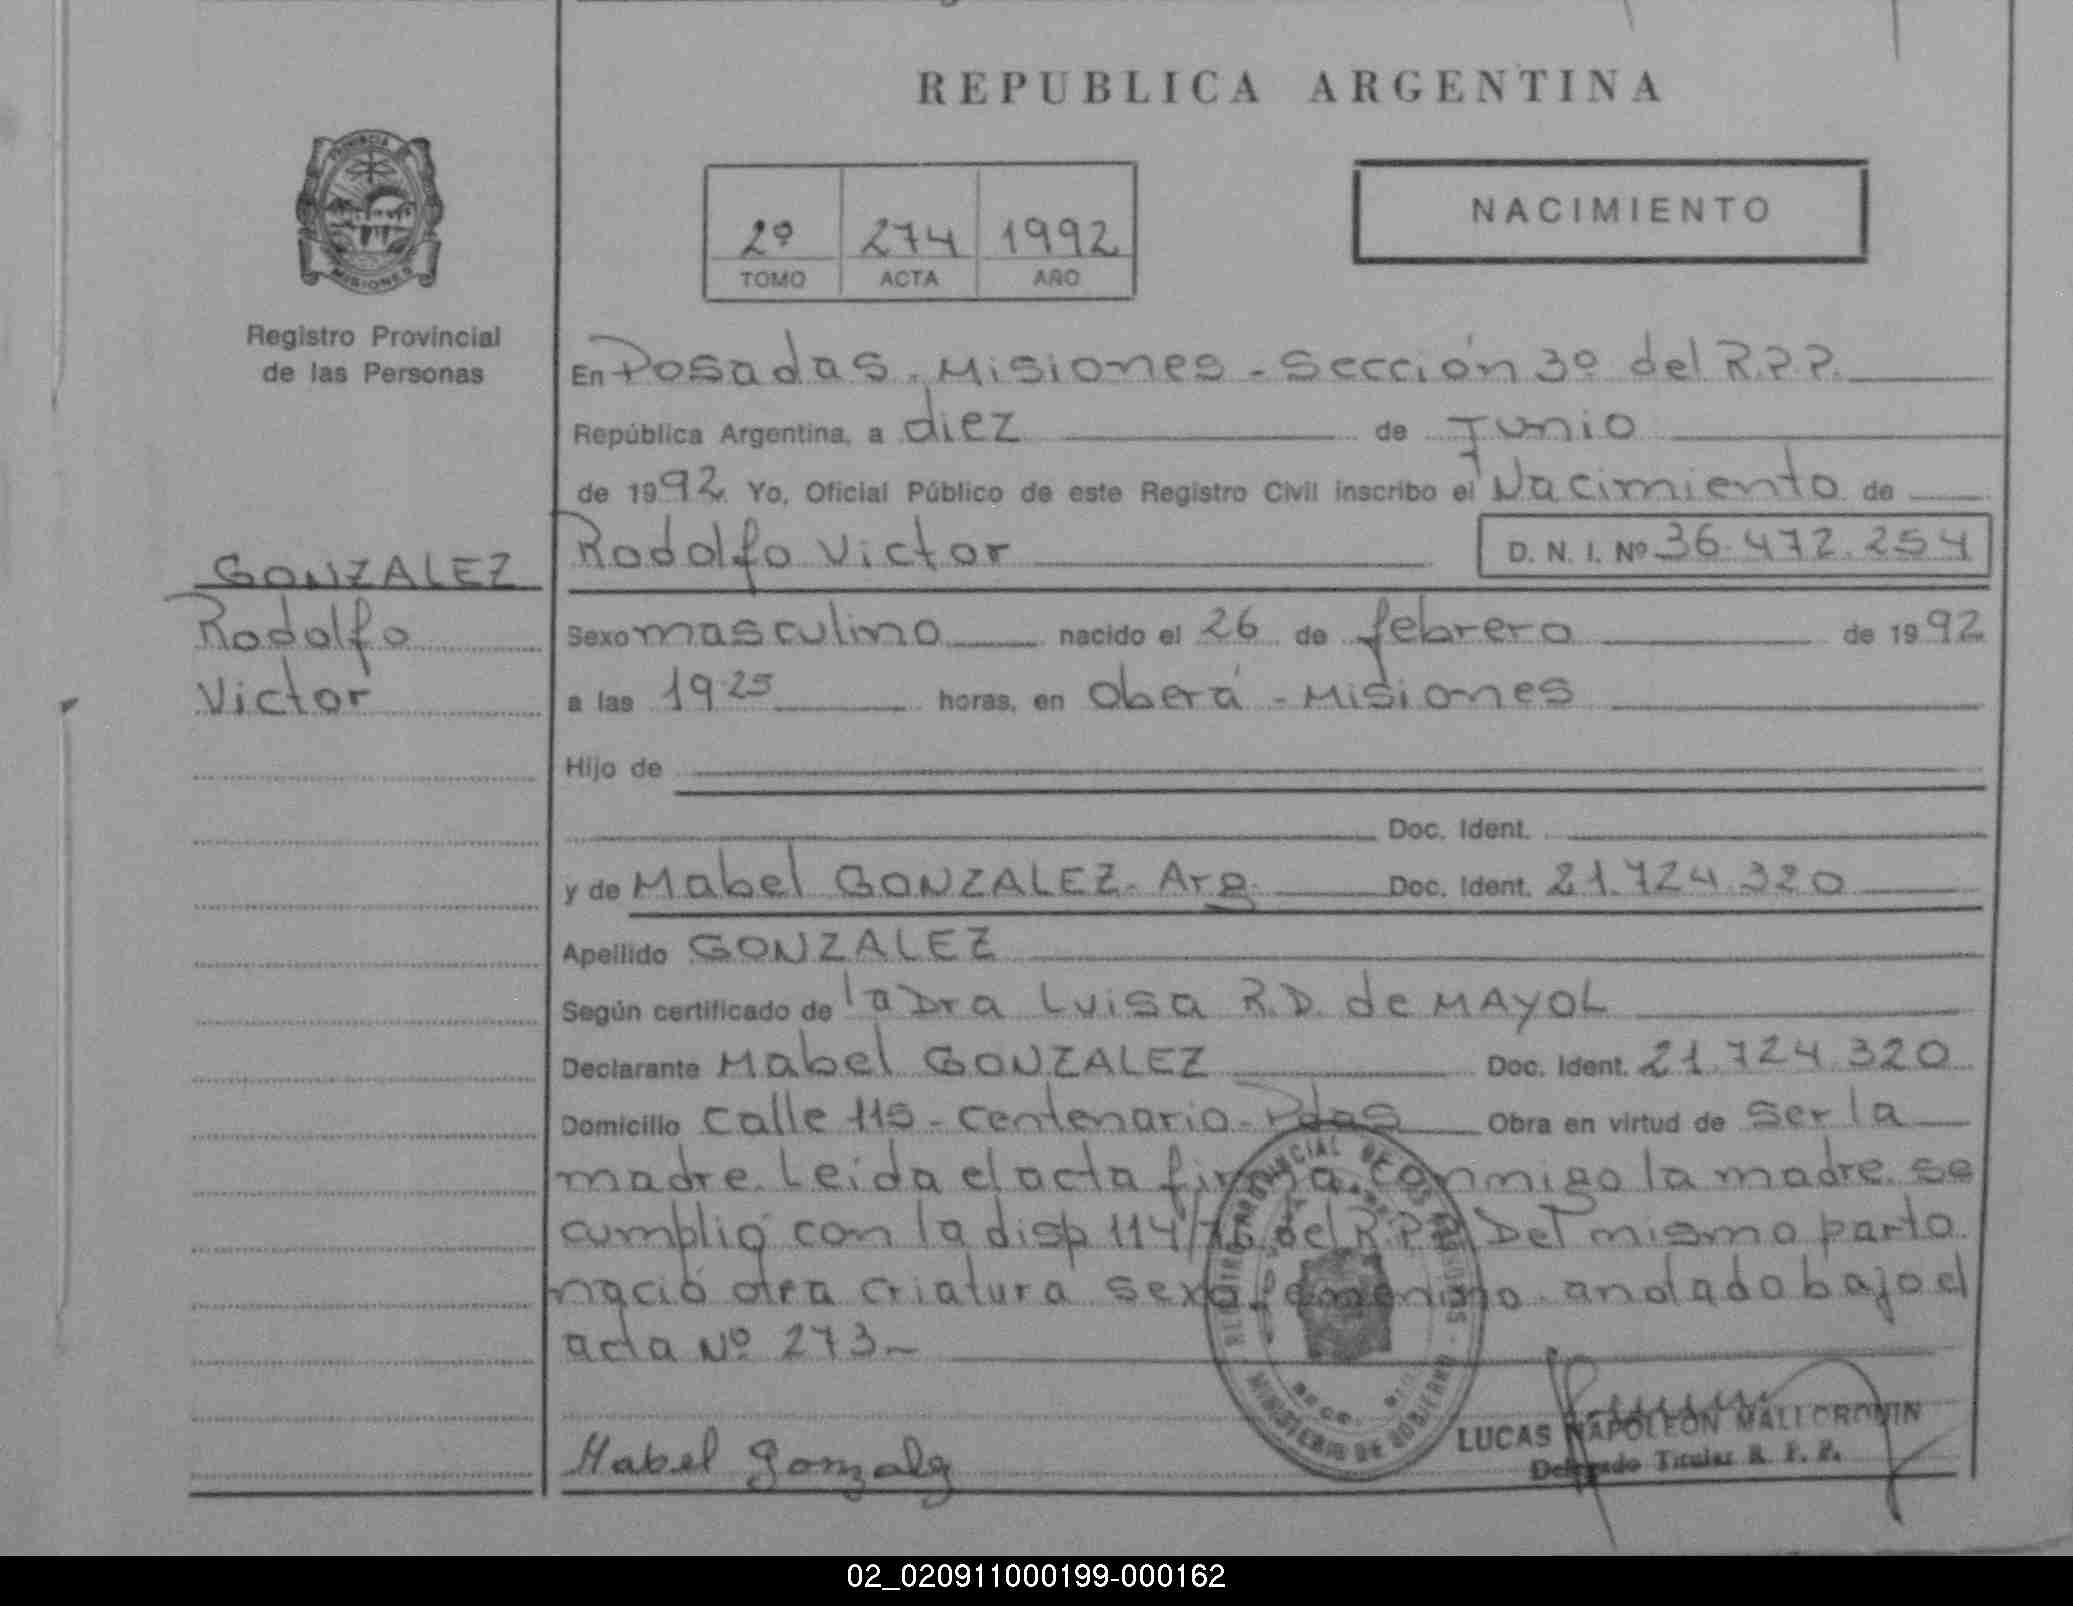 REPUBLICA ARGENTINA
PROVINCIA
MISIONES
Registro Provincial
de las Personas
2º 274 1992
TOMO ACTA AÑO
NACIMIENTO
En Posadas - Misiones - Sección 3º del R.P.P.
República Argentina, a diez de Junio
de 1992. Yo, Oficial Público de este Registro Civil inscribo el Nacimiento de
Rodolfo Victor D. N. I. Nº 36.472.254
GONZALEZ
Rodolfo
Victor
Sexo masculino nacido el 26 de febrero de 1992
a las 19.25 horas, en Oberá - Misiones
Hijo de
Doc. Ident.
y de Mabel GONZALEZ - Arg Doc. Ident. 21.724.320
Apellido GONZALEZ
Según certificado de la Dra Luisa R.D. de MAYOL
Declarante Mabel GONZALEZ Doc. Ident. 21.724.320
Domicilio Calle 115 - Centenario - Pdas Obra en virtud de ser la
madre. Leida el acta firma conmigo la madre. se
cumplió con la disp 114/76 del R.P.P. Del mismo parto
nació otra criatura sexo femenino anotado bajo el
acta Nº 273 -
MINISTERIO DE GOBIERNO
Mabel Gonzalez
LUCAS NAPOLEON
Delegado Titular R. P. P.
02_020911000199-000162